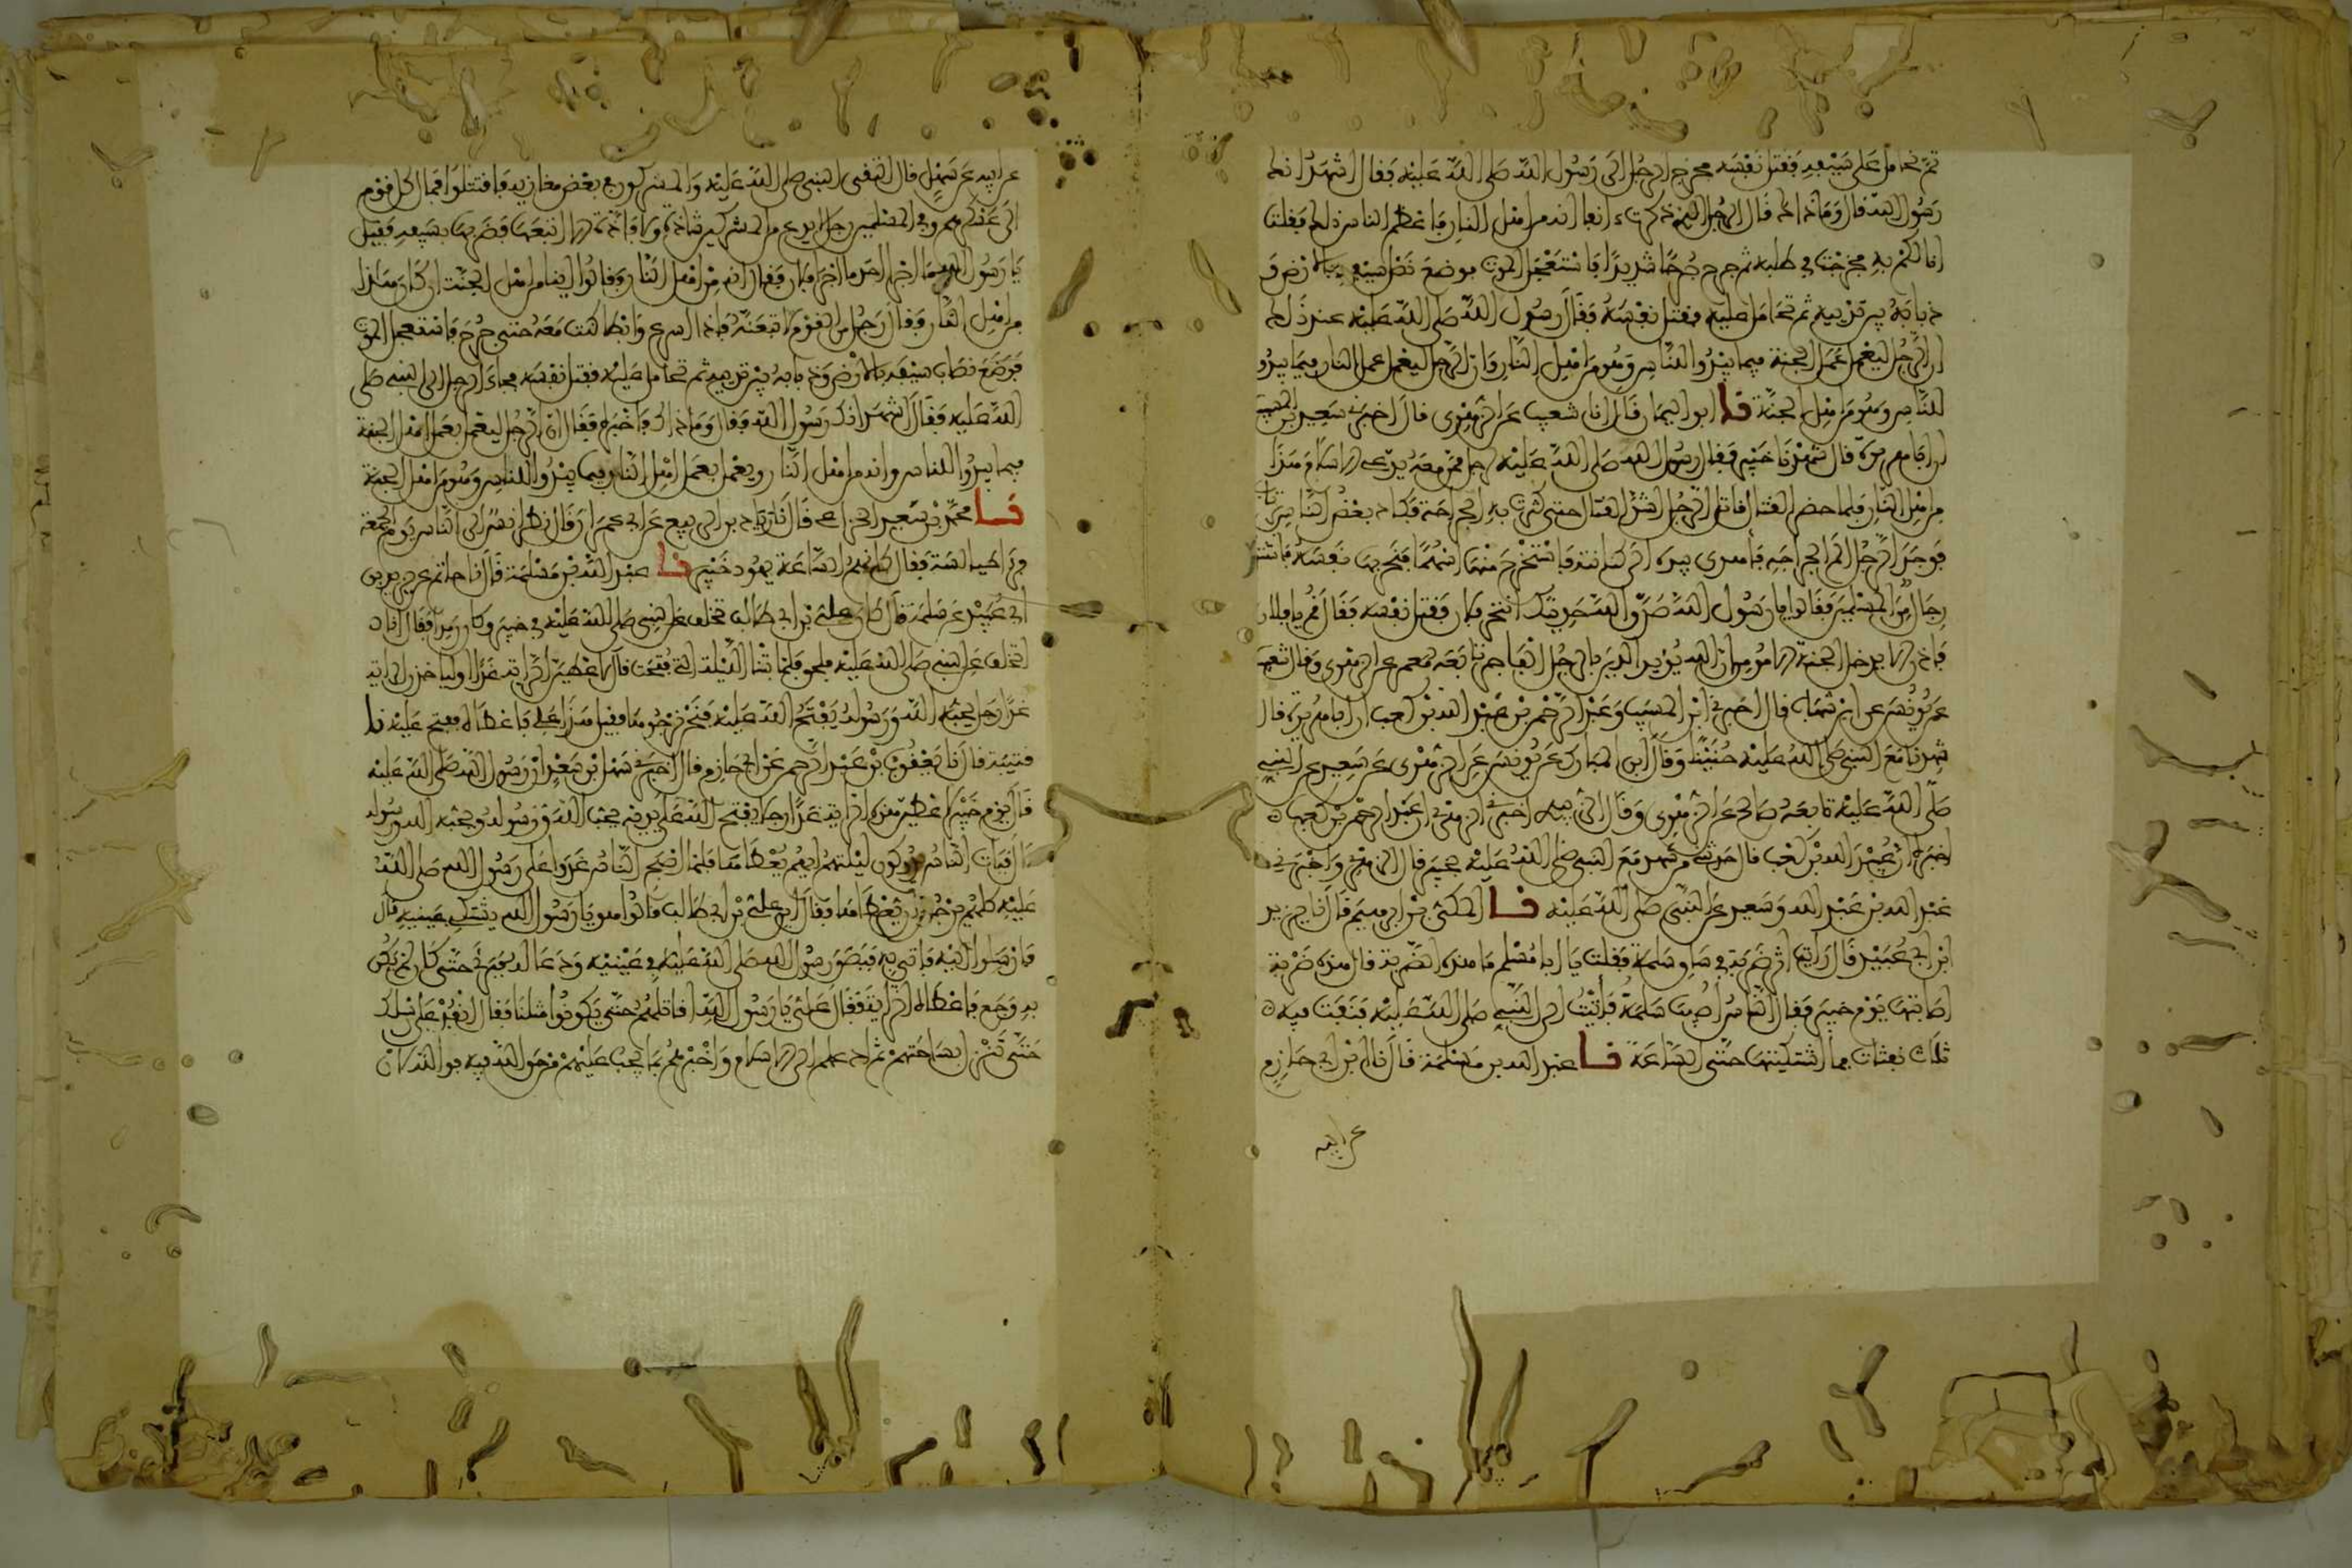 ثم تحامل على سيفه فقتل نفسه فخرج الرجل الى رسول الله صلى الله عليه فقال اشهد انك
رسول الله قال وما ذاك قال الرجل الذي ذكرت انفا انه من اهل النار فاعظم الناس ذلك فقلت
انا لكم به فخرجت في طلبه ثم جرح جرحا شديدا فاستعجل الموت فوضع نصل سيفه بالارض و
ذبابه بين ثدييه ثم تحامل عليه فقتل نفسه فقال رسول الله صلى الله عليه عند ذلك
ان الرجل ليعمل عمل الجنة فيما يبدوا للناس وهو من اهل النار وان الرجل ليعمل عمل النار فيما يبدوا
للناس وهو من اهل الجنة نا ابو اليمان قال انا شعيب عن الزهري قال اخبرني سعيد بن المسيب
ان ابا هريرة قال شهدنا خيبر فقال رسول الله صلى الله عليه لرجل ممن معه يدعي الاسلام هذا
من اهل النار فلما حضر القتال قاتل الرجل اشد القتال حتى كثرت به الجراحة فكاد بعض الناس يرتاب
فوجد الرجل الم الجراحة فاهوى بيده الى كنانته فاستخرج منها اسهما فنحر بها نفسه فاشتد
رجال من المسلمين فقالوا يا رسول الله صدق الله حديثك انتحر فلان فقتل نفسه فقال قم يا فلان
فاذن الا يدخل الجنة الا مؤمن ان الله يؤيد الدين بالرجل الفاجر تابعه معمر عن الزهري وقال شبيب
عن يونس عن ابن شهاب قال اخبرني ابن المسيب وعبد الرحمن بن عبد الله بن كعب ان ابا هريرة قال
شهدنا مع النبي صلى الله عليه حنينا وقال ابن المبارك عن يونس عن الزهري عن سعيد عن النبي
صلى الله عليه تابعه صالح عن الزهري وقال الزبيدي اخبرني الزهري ان عبد الرحمن بن كعب
اخبره ان عبيد الله بن كعب قال حدثني من شهد مع النبي صلى الله عليه خيبر قال الزهري واخبرني
عبد الله بن عبد الله وسعيد عن النبي صلى الله عليه نا المكي بن ابراهيم قال نا يزيد
ابن ابي عبيد قال رايت اثر ضربة في ساق سلمة فقلت يا ابا مسلم ما هذه الضربة قال هذه ضربة
اصابتها يوم خيبر فقال الناس اصيب سلمة فاتيت الى النبي صلى الله عليه فنفث فيه
ثلاث نفثات فما اشتكيتها حتى الساعة نا عبد الله بن مسلمة قال نا ابن ابي حازم
عن ابيه
عن ابيه عن سهل قال التقى النبي صلى الله عليه والمشركون في بعض مغازيه فاقتتلوا فمال كل قوم
الى عسكرهم وفي المسلمين رجل لا يدع من المشركين شاذة ولا فاذة الا اتبعها فضربها بسيفه فقيل
يا رسول الله ما اجزا احد ما اجزا فلان فقال انه من اهل النار فقالوا اينا من اهل الجنة ان كان هذا
من اهل النار فقال رجل من القوم لاتبعنه فاذا اسرع وابطا كنت معه حتى جرح فاستعجل الموت
فوضع نصاب سيفه بالارض وذبابه بين ثدييه ثم تحامل عليه فقتل نفسه فجاء الرجل الى النبي صلى
الله عليه فقال اشهد انك رسول الله فقال وما ذاك فاخبره فقال ان الرجل ليعمل بعمل اهل الجنة
فيما يبدوا للناس وانه من اهل النار ويعمل بعمل اهل النار فيما يبدوا للناس وهو من اهل الجنة
نا محمد بن سعيد الخزاعي قال نا زياد بن الربيع عن ابي عمران قال نظر انس الى الناس يوم الجمعة
فراى طيالسة فقال كانهم الساعة يهود خيبر نا عبد الله بن مسلمة قال نا حاتم عن يزيد بن
ابي عبيد عن سلمة قال كان علي بن ابي طالب تخلف عن النبي صلى الله عليه في خيبر وكان رمدا فقال انا
اتخلف عن النبي صلى الله عليه فلحق فلما بتنا الليلة التي فتحت قال لاعطين الراية غدا او لياخذن الراية
غدا رجل يحبه الله ورسوله يفتح الله عليه فنحن نرجوها فقيل هذا علي فاعطاه ففتح عليه نا
قتيبة قال نا يعقوب بن عبد الرحمن عن ابي حازم قال اخبرني سهل بن سعد ان رسول الله صلى الله عليه
قال يوم خيبر لاعطين هذه الراية غدا رجلا يفتح الله على يديه يحب الله ورسوله ويحبه الله ورسوله
قال فبات الناس يدوكون ليلتهم ايهم يعطاها فلما اصبح الناس غدوا على رسول الله صلى الله
عليه كلهم يرجو ان يعطاها فقال اين علي بن ابي طالب قالوا هو يا رسول الله يشتكي عينيه قال
فارسلوا اليه فاتي به فبصق رسول الله صلى الله عليه في عينيه ودعا له فبرئ حتى كان لم يكن
به وجع فاعطاه الراية فقال علي يا رسول الله اقاتلهم حتى يكونوا مثلنا فقال انفذ على رسلك
حتى تنزل بساحتهم ثم ادعهم الى الاسلام واخبرهم بما يجب عليهم من حق الله فيه فوالله لان